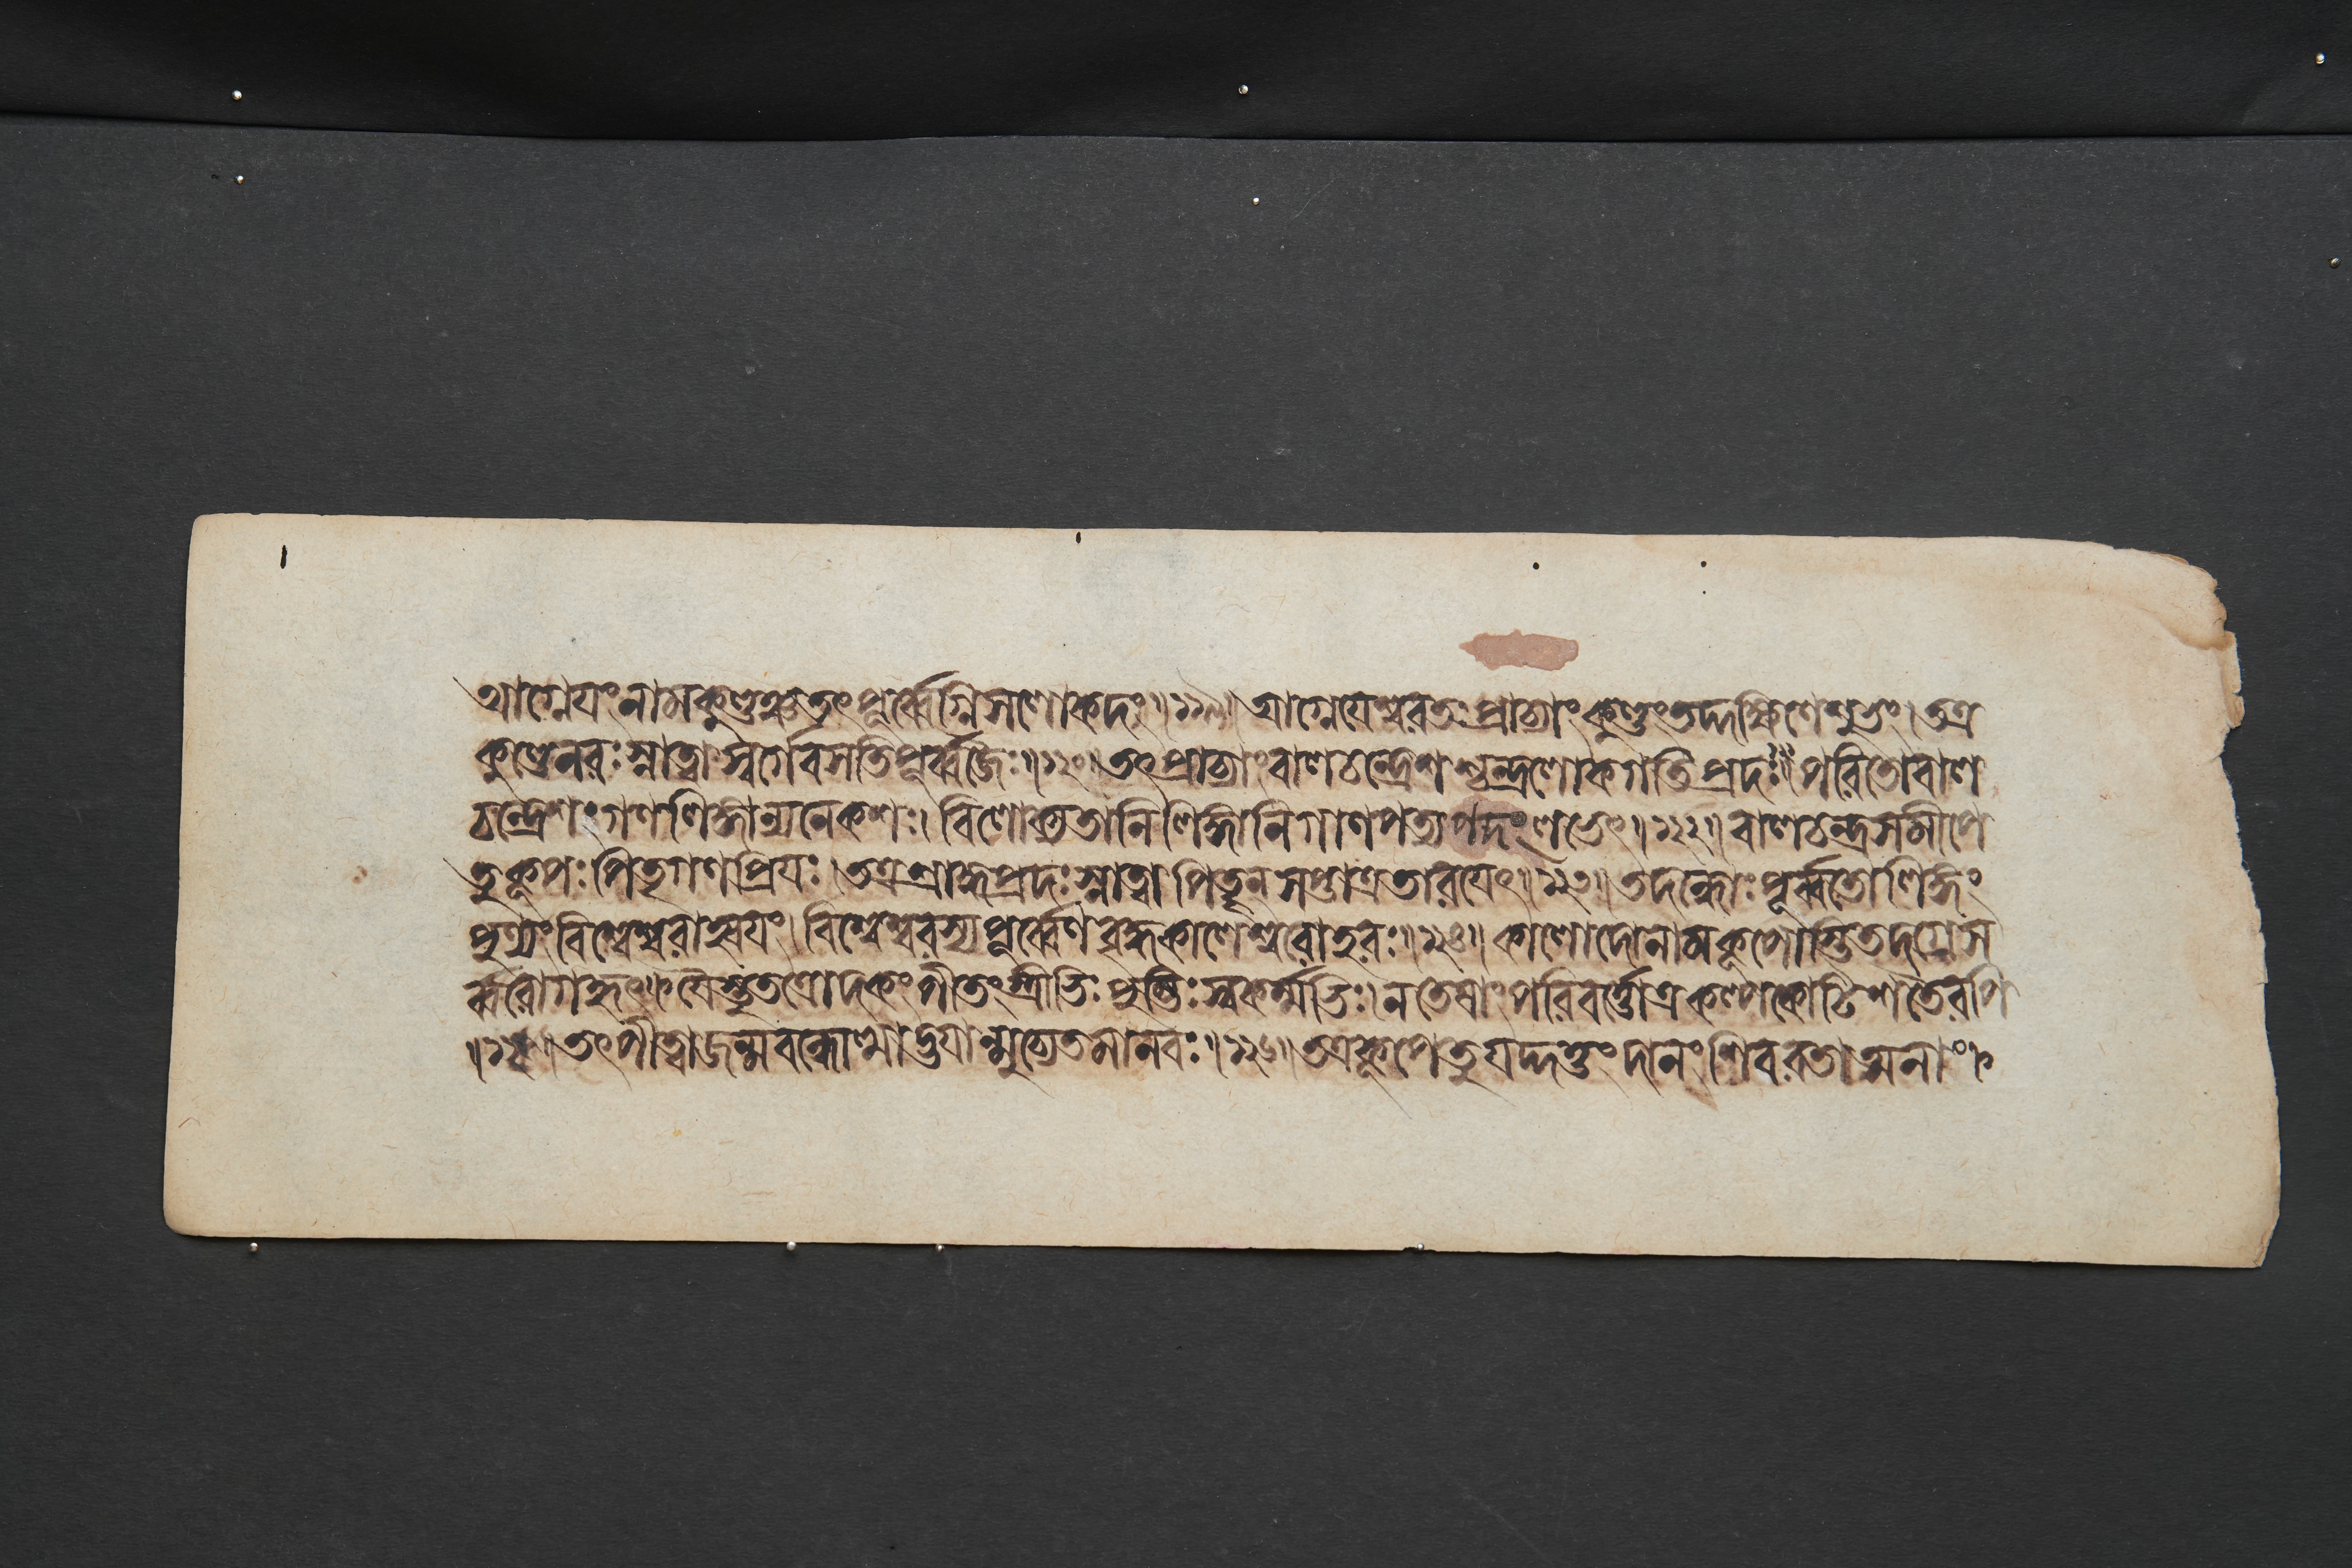 আগ্নেযং নাম কুণ্ডঞ্চ তৎপূর্ব্বেগ্নিসলোকদঃ॥১১৯॥ আগ্নেযেশ্বরতঃ প্রাচ্যাং কুণ্ডং তদ্দক্ষিণে শুভং। তত্র
কুণ্ডে নরঃ স্নাত্বা স্বর্গে বসতি পূর্ব্বজৈঃ॥১২০॥ তৎপ্রাচ্যাং বালচন্দ্রেশশ্চন্দ্রলোকগতিপ্রদঃ॥ পরিতো বাল
চন্দ্রেশং গণলিঙ্গান্যনেকশঃ। বিলোক্য তানি লিঙ্গানি গাণপত্যপদং লভেৎ॥১২২॥ বালচন্দ্রসমীপে
তু কূপঃ পিতৃগণপ্রিযঃ। তত্র শ্রাদ্ধপ্রদঃ স্নাত্বা পিতৄন সপ্তাত্র তারযেৎ॥১২৩॥ তদন্ধোঃ পূর্ব্বতো লিঙ্গং
পুণ্যং বিশ্বেশ্বরাহ্বযং। বিশ্বেশ্বরস্য পূর্ব্বেণ বৃদ্ধকালেশ্বরো হরঃ॥১২৪॥ কালোদো নাম কূপোস্তি তদগ্রে স
র্ব্বরোগহৃৎ। যৈস্তু তত্রোদকং পীতং স্ত্রীভিঃ পুম্ভিঃ স্বকর্ম্মভিঃ। ন তেষাং পরিবর্ত্তোত্র কল্পকোটিশতৈরপি
॥১২৫॥ তৎ পীত্বা জন্মবন্ধোত্থাদ্ভযান্মুচ্যেত মানবঃ॥১২৬॥ তত্র কূপে তু যদ্দত্তং দানং শিবরতাত্মনাং।